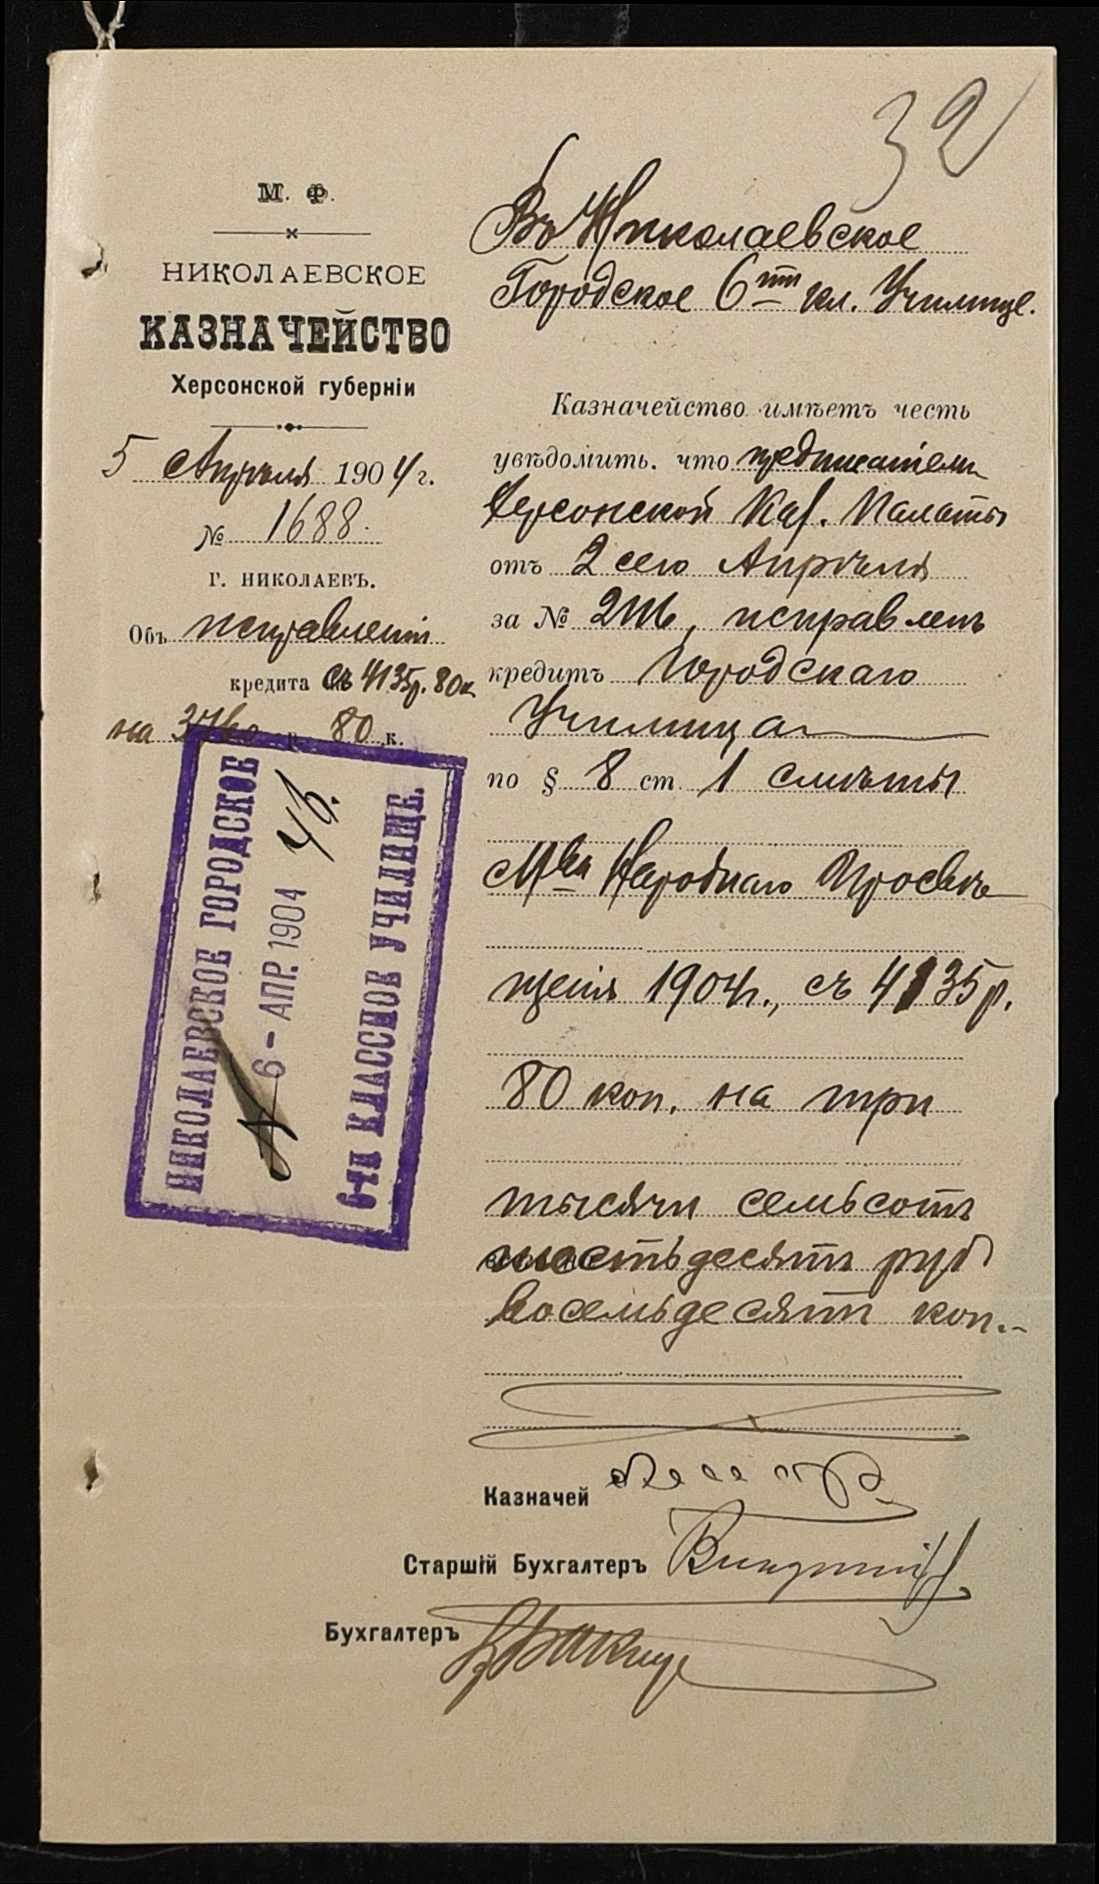 32
М. Ф.
НИКОЛАЕВСКОЕ
КАЗНАЧЕЙСТВО
Херсонской губерніи
5 Апрѣля 1904 г.
№ 1688.
Г. НИКОЛАЕВЪ.
Объ исправленіи
кредита съ 4135р. 80к
на 3760 р. 80 к.
НИКОЛАЕВСКОЕ ГОРОДСКОЕ
6 - АПР. 1904
6-ти КЛАССНОЕ УЧИЛИЩЕ.
Въ Николаевское
Городское 6ти кл. Училище.
Казначейство имѣетъ честь
увѣдомить, что
Херсонской Каз. Палаты
отъ 2 сего Апрѣля
за № исправленъ
кредитъ Городскаго
Училища
по § 8 ст. 1 смѣты
Мва Народнаго Просвѣ
щенія 1904г., съ 4135р.
80 коп. на три
тысячи семьсотъ
шестьдесятъ руб
восемьдесятъ коп.
Казначей
Старшій Бухгалтеръ
Бухгалтеръ